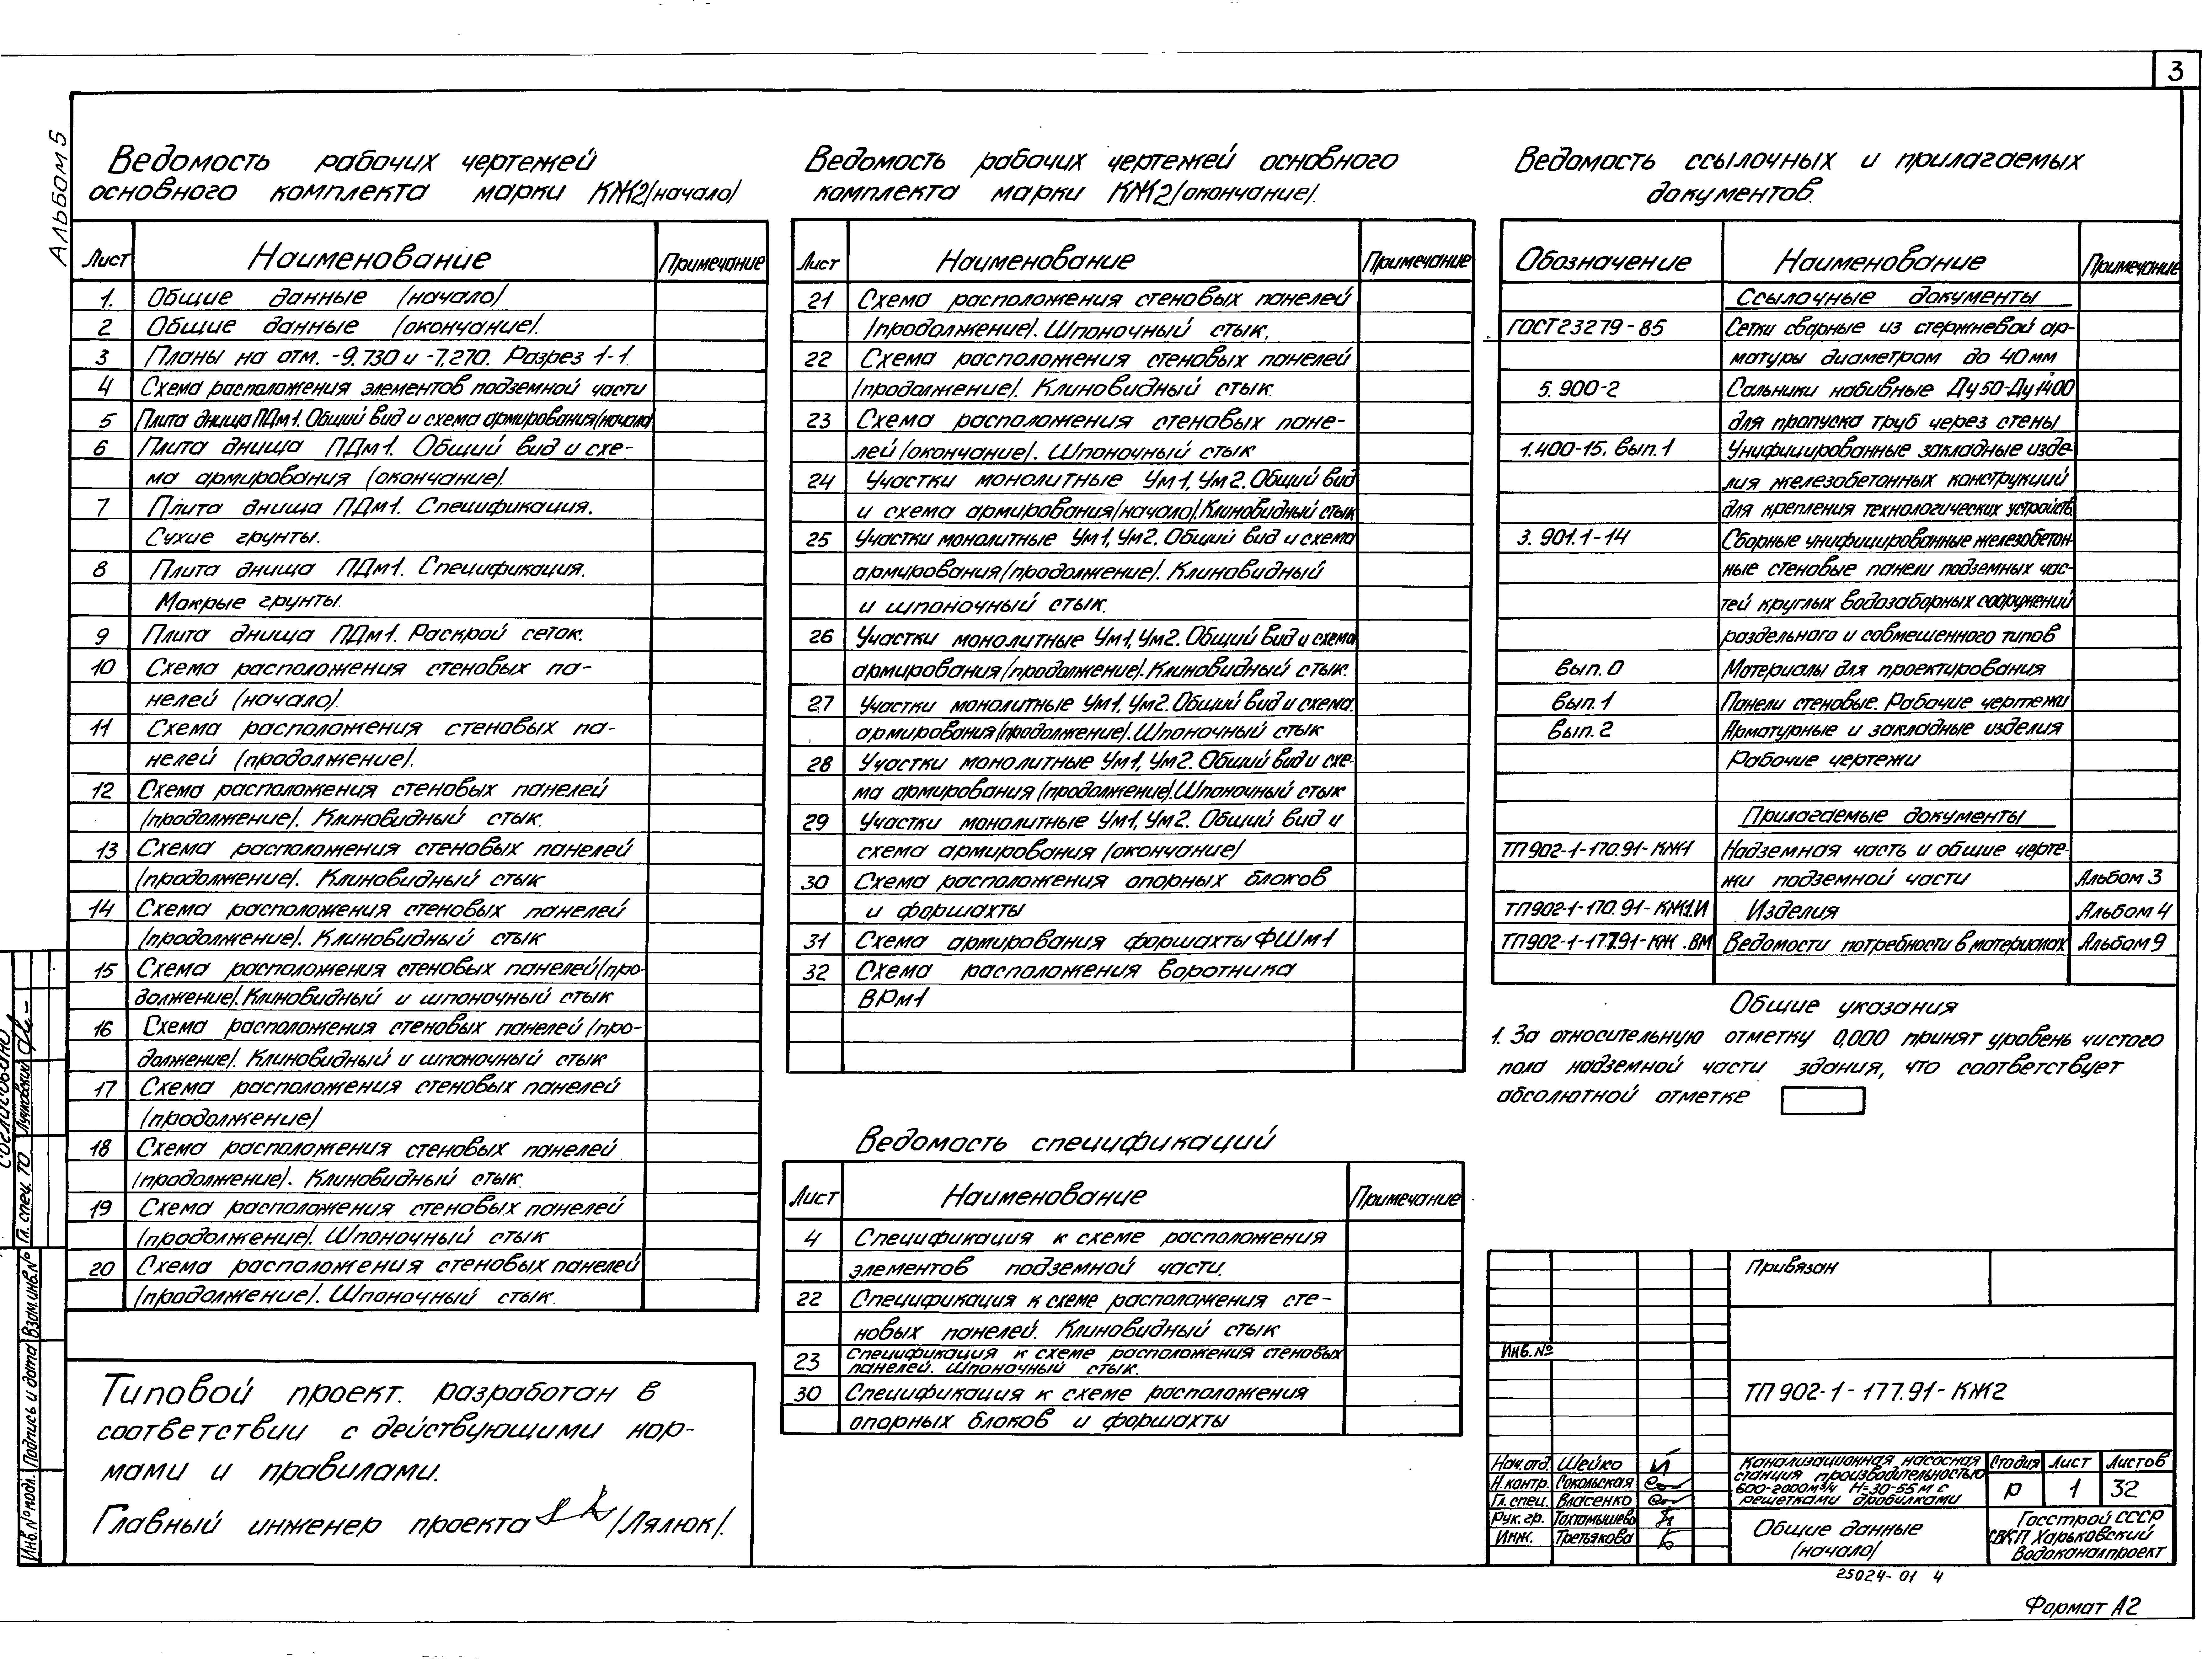 3
Альбом 5
Ведомость рабочих чертежей
основного комплекта марки КЖ2 (начало)
Лист Наименование Примечание
1. Общие данные (начало)
2 Общие данные (окончание).
3 Планы на отм. -9.730 и -7.270. Разрез 1-1.
4 Схема расположения элементов подземной части
5 Плита днища ПДм1. Общий вид и схема армирования (начало)
6 Плита днища ПДм1. Общий вид и схе-
ма армирования (окончание).
7 Плита днища ПДм1. Спецификация.
Сухие грунты.
8 Плита днища ПДм1. Спецификация.
Мокрые грунты.
9 Плита днища ПДм1. Раскрой сеток.
10 Схема расположения стеновых па-
нелей (начало).
11 Схема расположения стеновых па-
нелей (продолжение).
12 Схема расположения стеновых панелей
(продолжение). Клиновидный стык.
13 Схема расположения стеновых панелей
(продолжение). Клиновидный стык
14 Схема расположения стеновых панелей
(продолжение). Клиновидный стык
15 Схема расположения стеновых панелей (про-
должение). Клиновидный и шпоночный стык
16 Схема расположения стеновых панелей (про-
должение). Клиновидный и шпоночный стык
17 Схема расположения стеновых панелей
(продолжение)
18 Схема расположения стеновых панелей
(продолжение). Клиновидный стык.
19 Схема расположения стеновых панелей
(продолжение). Шпоночный стык
20 Схема расположения стеновых панелей
(продолжение). Шпоночный стык.
Типовой проект разработан в
соответствии с действующими нор-
мами и правилами.
Главный инженер проекта /Лялюк/.
Ведомость рабочих чертежей основного
комплекта марки КЖ2 (окончание).
Лист Наименование Примечание
21 Схема расположения стеновых панелей
(продолжение). Шпоночный стык.
22 Схема расположения стеновых панелей
(продолжение). Клиновидный стык.
23 Схема расположения стеновых пане-
лей (окончание). Шпоночный стык
24 Участки монолитные Ум1, Ум2. Общий вид
и схема армирования (начало). Клиновидный стык
25 Участки монолитные Ум1, Ум2. Общий вид и схема
армирования (продолжение). Клиновидный
и шпоночный стык.
26 Участки монолитные Ум1, Ум2. Общий вид и схема
армирования (продолжение). Клиновидный стык.
27 Участки монолитные Ум1, Ум2. Общий вид и схема
армирования (продолжение). Шпоночный стык
28 Участки монолитные Ум1, Ум2. Общий вид и схе-
ма армирования (продолжение). Шпоночный стык
29 Участки монолитные Ум1, Ум2. Общий вид и
схема армирования (окончание)
30 Схема расположения опорных блоков
и форшахты
31 Схема армирования форшахты ФШм1
32 Схема расположения воротника
ВРм1
Ведомость спецификаций
Лист Наименование Примечание
4 Спецификация к схеме расположения
элементов подземной части.
22 Спецификация к схеме расположения сте-
новых панелей. Клиновидный стык
23 Спецификация к схеме расположения стеновых
панелей. Шпоночный стык.
30 Спецификация к схеме расположения
опорных блоков и форшахты
Ведомость ссылочных и прилагаемых
документов.
Обозначение Наименование Примечание
Ссылочные документы
ГОСТ 23279-85 Сетки сварные из стержневой ар-
матуры диаметром до 40мм
5.900-2 Сальники набивные Ду50-Ду1400
для пропуска труб через стены
1.400-15, вып.1 Унифицированные закладные изде-
лия железобетонных конструкций
для крепления технологических устройств
3.901.1-14 Сборные унифицированные железобетон-
ные стеновые панели подземных час-
тей круглых водозаборных сооружений
раздельного и совмещенного типов
вып.0 Материалы для проектирования
вып.1 Панели стеновые. Рабочие чертежи
вып.2 Арматурные и закладные изделия
Рабочие чертежи
Прилагаемые документы
ТП 902-1-170.91-КЖ1 Надземная часть и общие черте-
жи подземной части Альбом 3
ТП 902-1-170.91-КЖ1.И Изделия Альбом 4
ТП 902-1-177.91-КЖ.ВМ Ведомости потребности в материалах Альбом 9
Общие указания
1. За относительную отметку 0,000 принят уровень чистого
пола надземной части здания, что соответствует
абсолютной отметке
Привязан
Инв.№
ТП 902-1-177.91-КЖ2
Нач.отд. Шейко
Н.контр. Сокольская
Гл.спец. Власенко
Рук.гр. Тохтамышева
Инж. Третьякова
Канализационная насосная
станция производительностью
600-2000м³/ч Н=30-55м с
решетками дробилками
Стадия Лист Листов
Р 1 32
Общие данные
(начало)
Госстрой СССР
СВКП Харьковский
Водоканалпроект
25024-01 4
Формат А2
Согласовано
Гл. спец. ТО Лучковский
Инв.№ подл. Подпись и дата Взам.инв.№